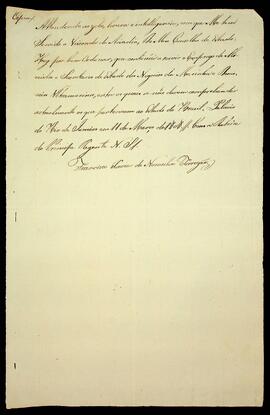 Copia
Attendendo ao zelo, honra e intelligencia, com que Me tem
Servido o Visconde de Anadia, do Meu Conselho de Estado:
Hey por bem Ordenar, que continúe a servir o Emprego de Mi-
nistro e Secretario de Estado dos Negocios da Marinha e Domi-
nios Ultramarinos, entre os quaes se não devem comprehender
actualmente os que pertencem ao Estado do Brasil. Palacio
do Rio de Janeiro em 11 de Março de 1808 // Com a Rubrica
do Principe Regente N. S. //
Francisco Xavier de Noronha Torrezão